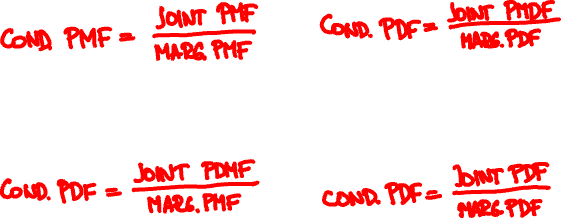 COND. PMF = JOINT PMF / MARG. PMF
COND. PDF = JOINT PMDF / MARG. PDF
COND. PDF = JOINT PDMF / MARG. PMF
COND. PDF = JOINT PDF / MARG. PDF